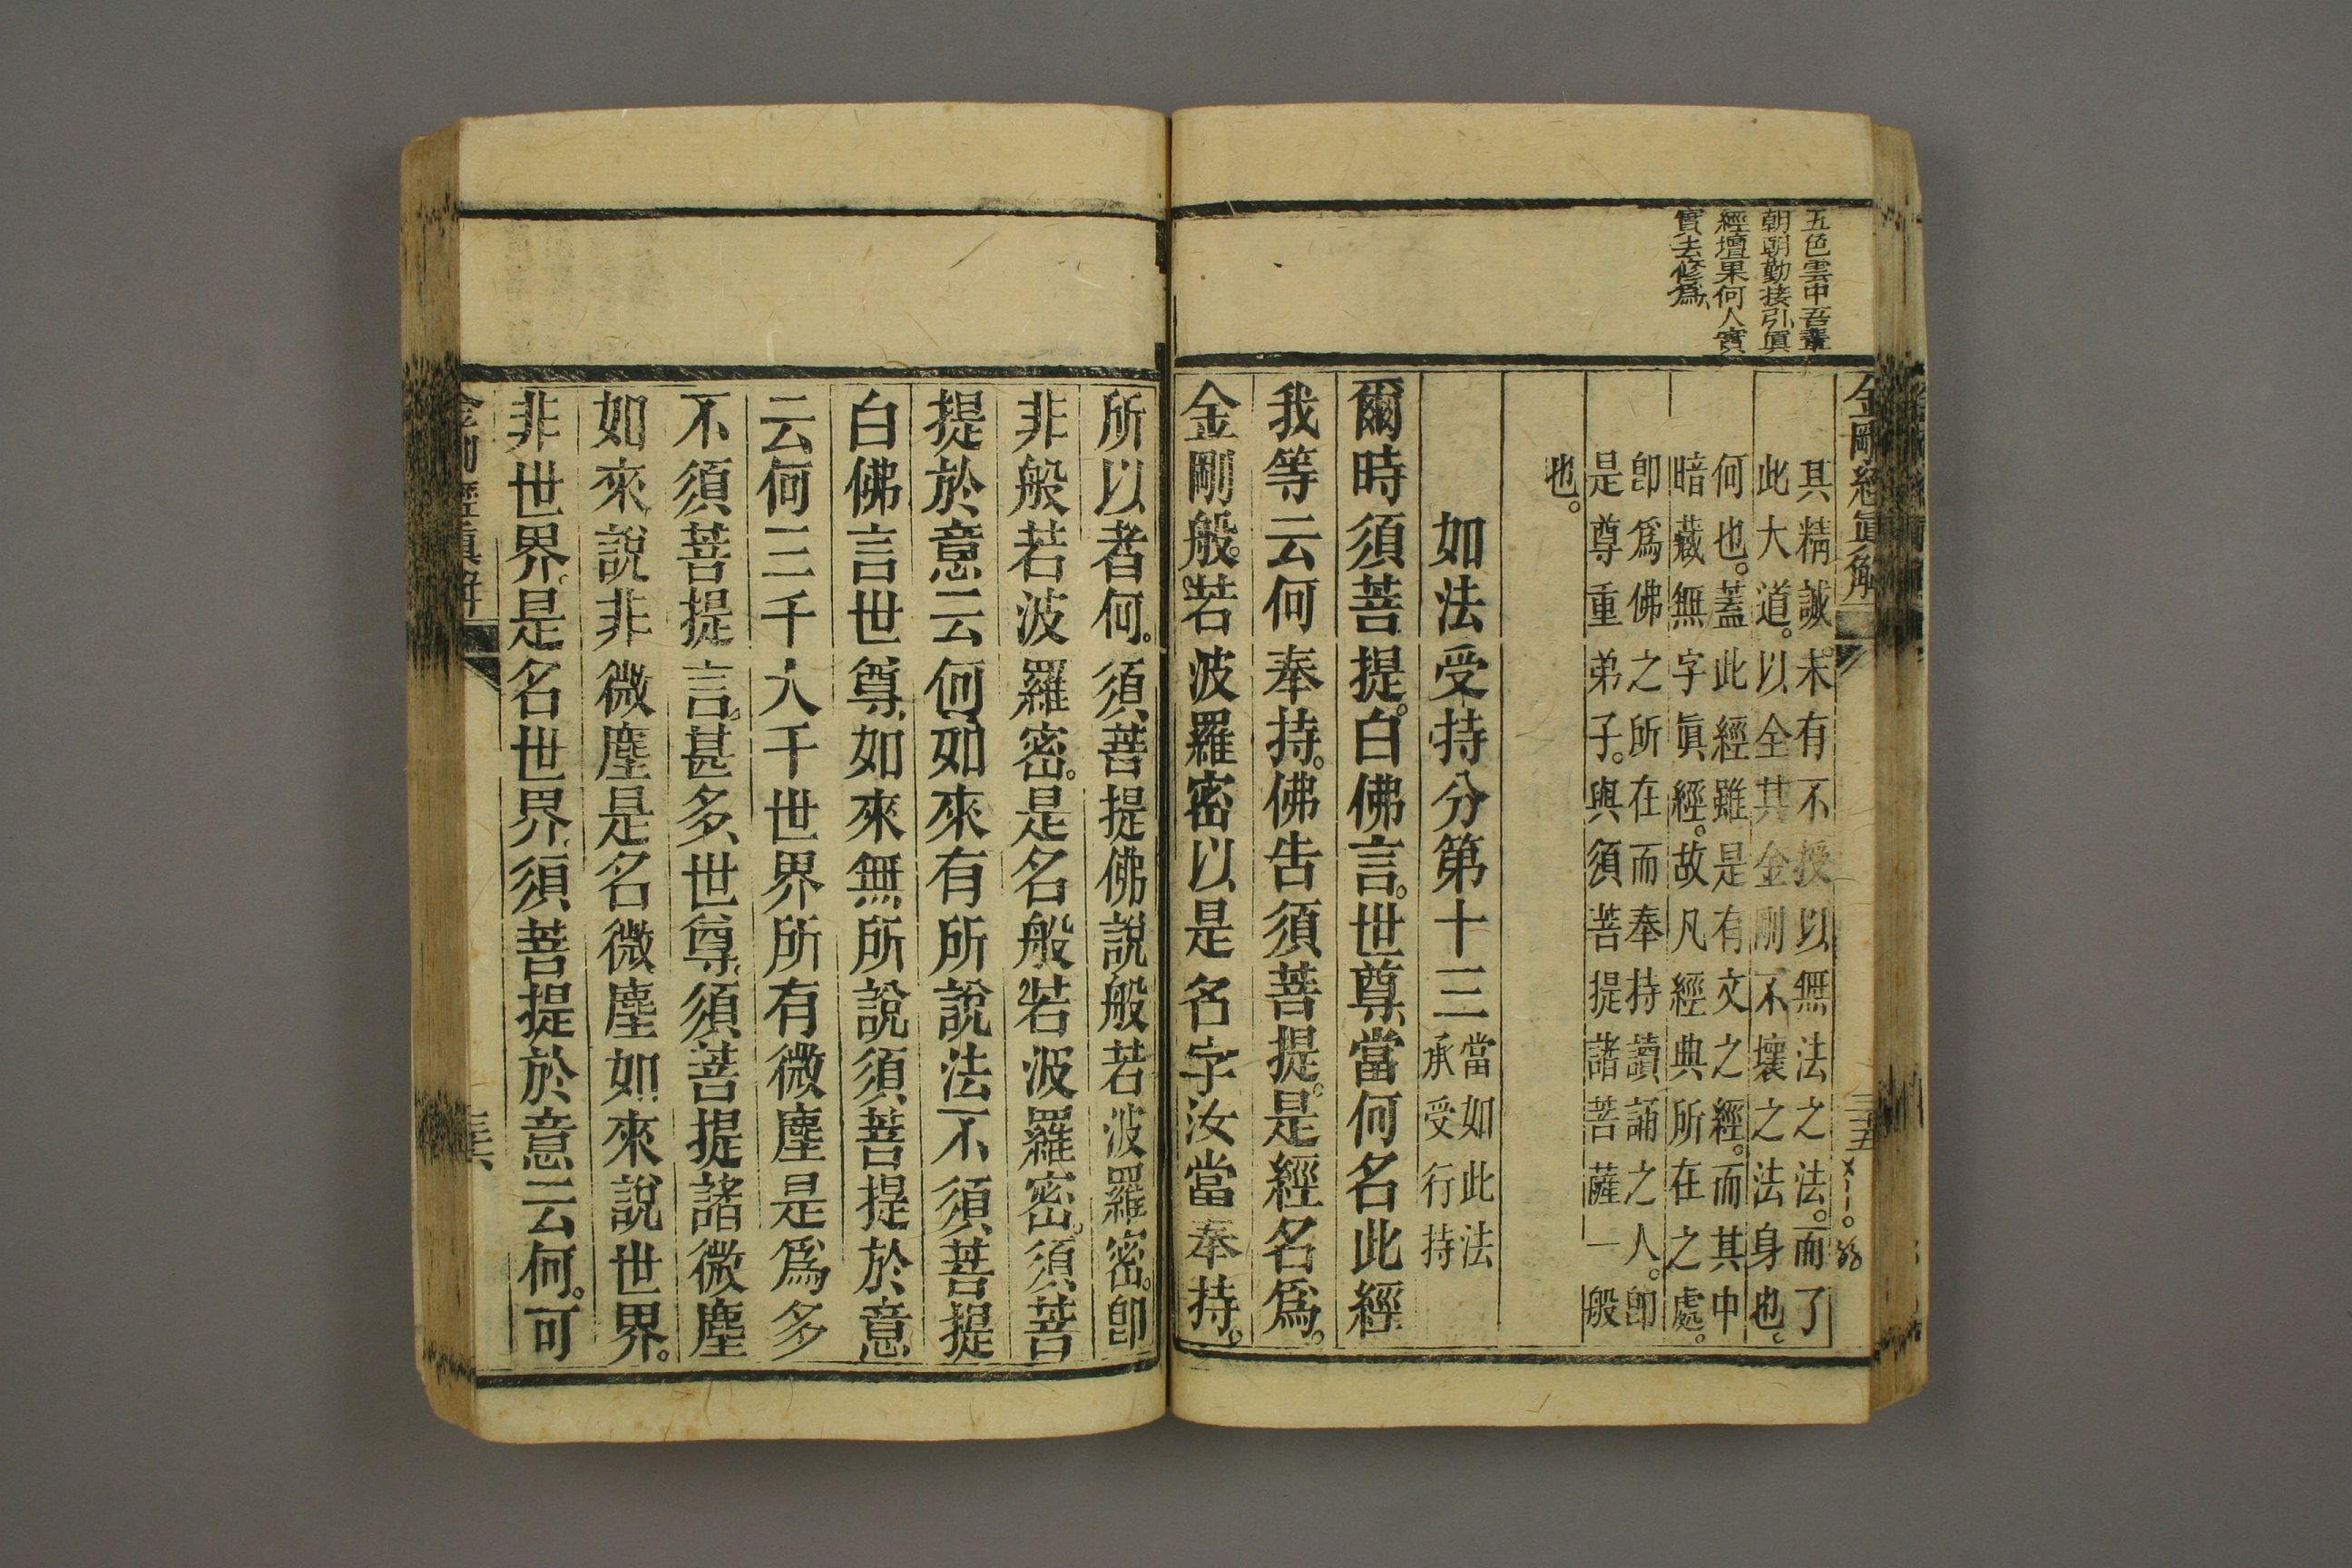 五色雲中吾輩
朝朝勤接引眞
經壇果何人實
實去修爲
金剛經眞解
三五
其精誠未有不授以無法之法。而了
此大道。以全其金剛不壞之法身也。
何也。蓋此經雖是有文之經。而其中
暗藏無字眞經。故凡經典所在之處。
卽爲佛之所在而奉持讀誦之人。卽
是尊重弟子。與須菩提諸菩薩一般
也。
如法受持分第十三
當如此法
承受行持
爾時須菩提。白佛言。世尊當何名此經
我等云何奉持。佛告須菩提。是經名爲。
金剛般若波羅密以是名字汝當奉持。
所以者何。須菩提佛說般若波羅密。卽
非般若波羅密。是名般若波羅密。須菩
提於意云何如來有所說法不須菩提
白佛言世尊如來無所說須菩提於意
云何三千大千世界所有微塵是爲多
不須菩提言。甚多世尊須菩提諸微塵
如來說非微塵是名微塵如來說世界。
非世界。是名世界須菩提於意云何。可
金剛經眞解
三六